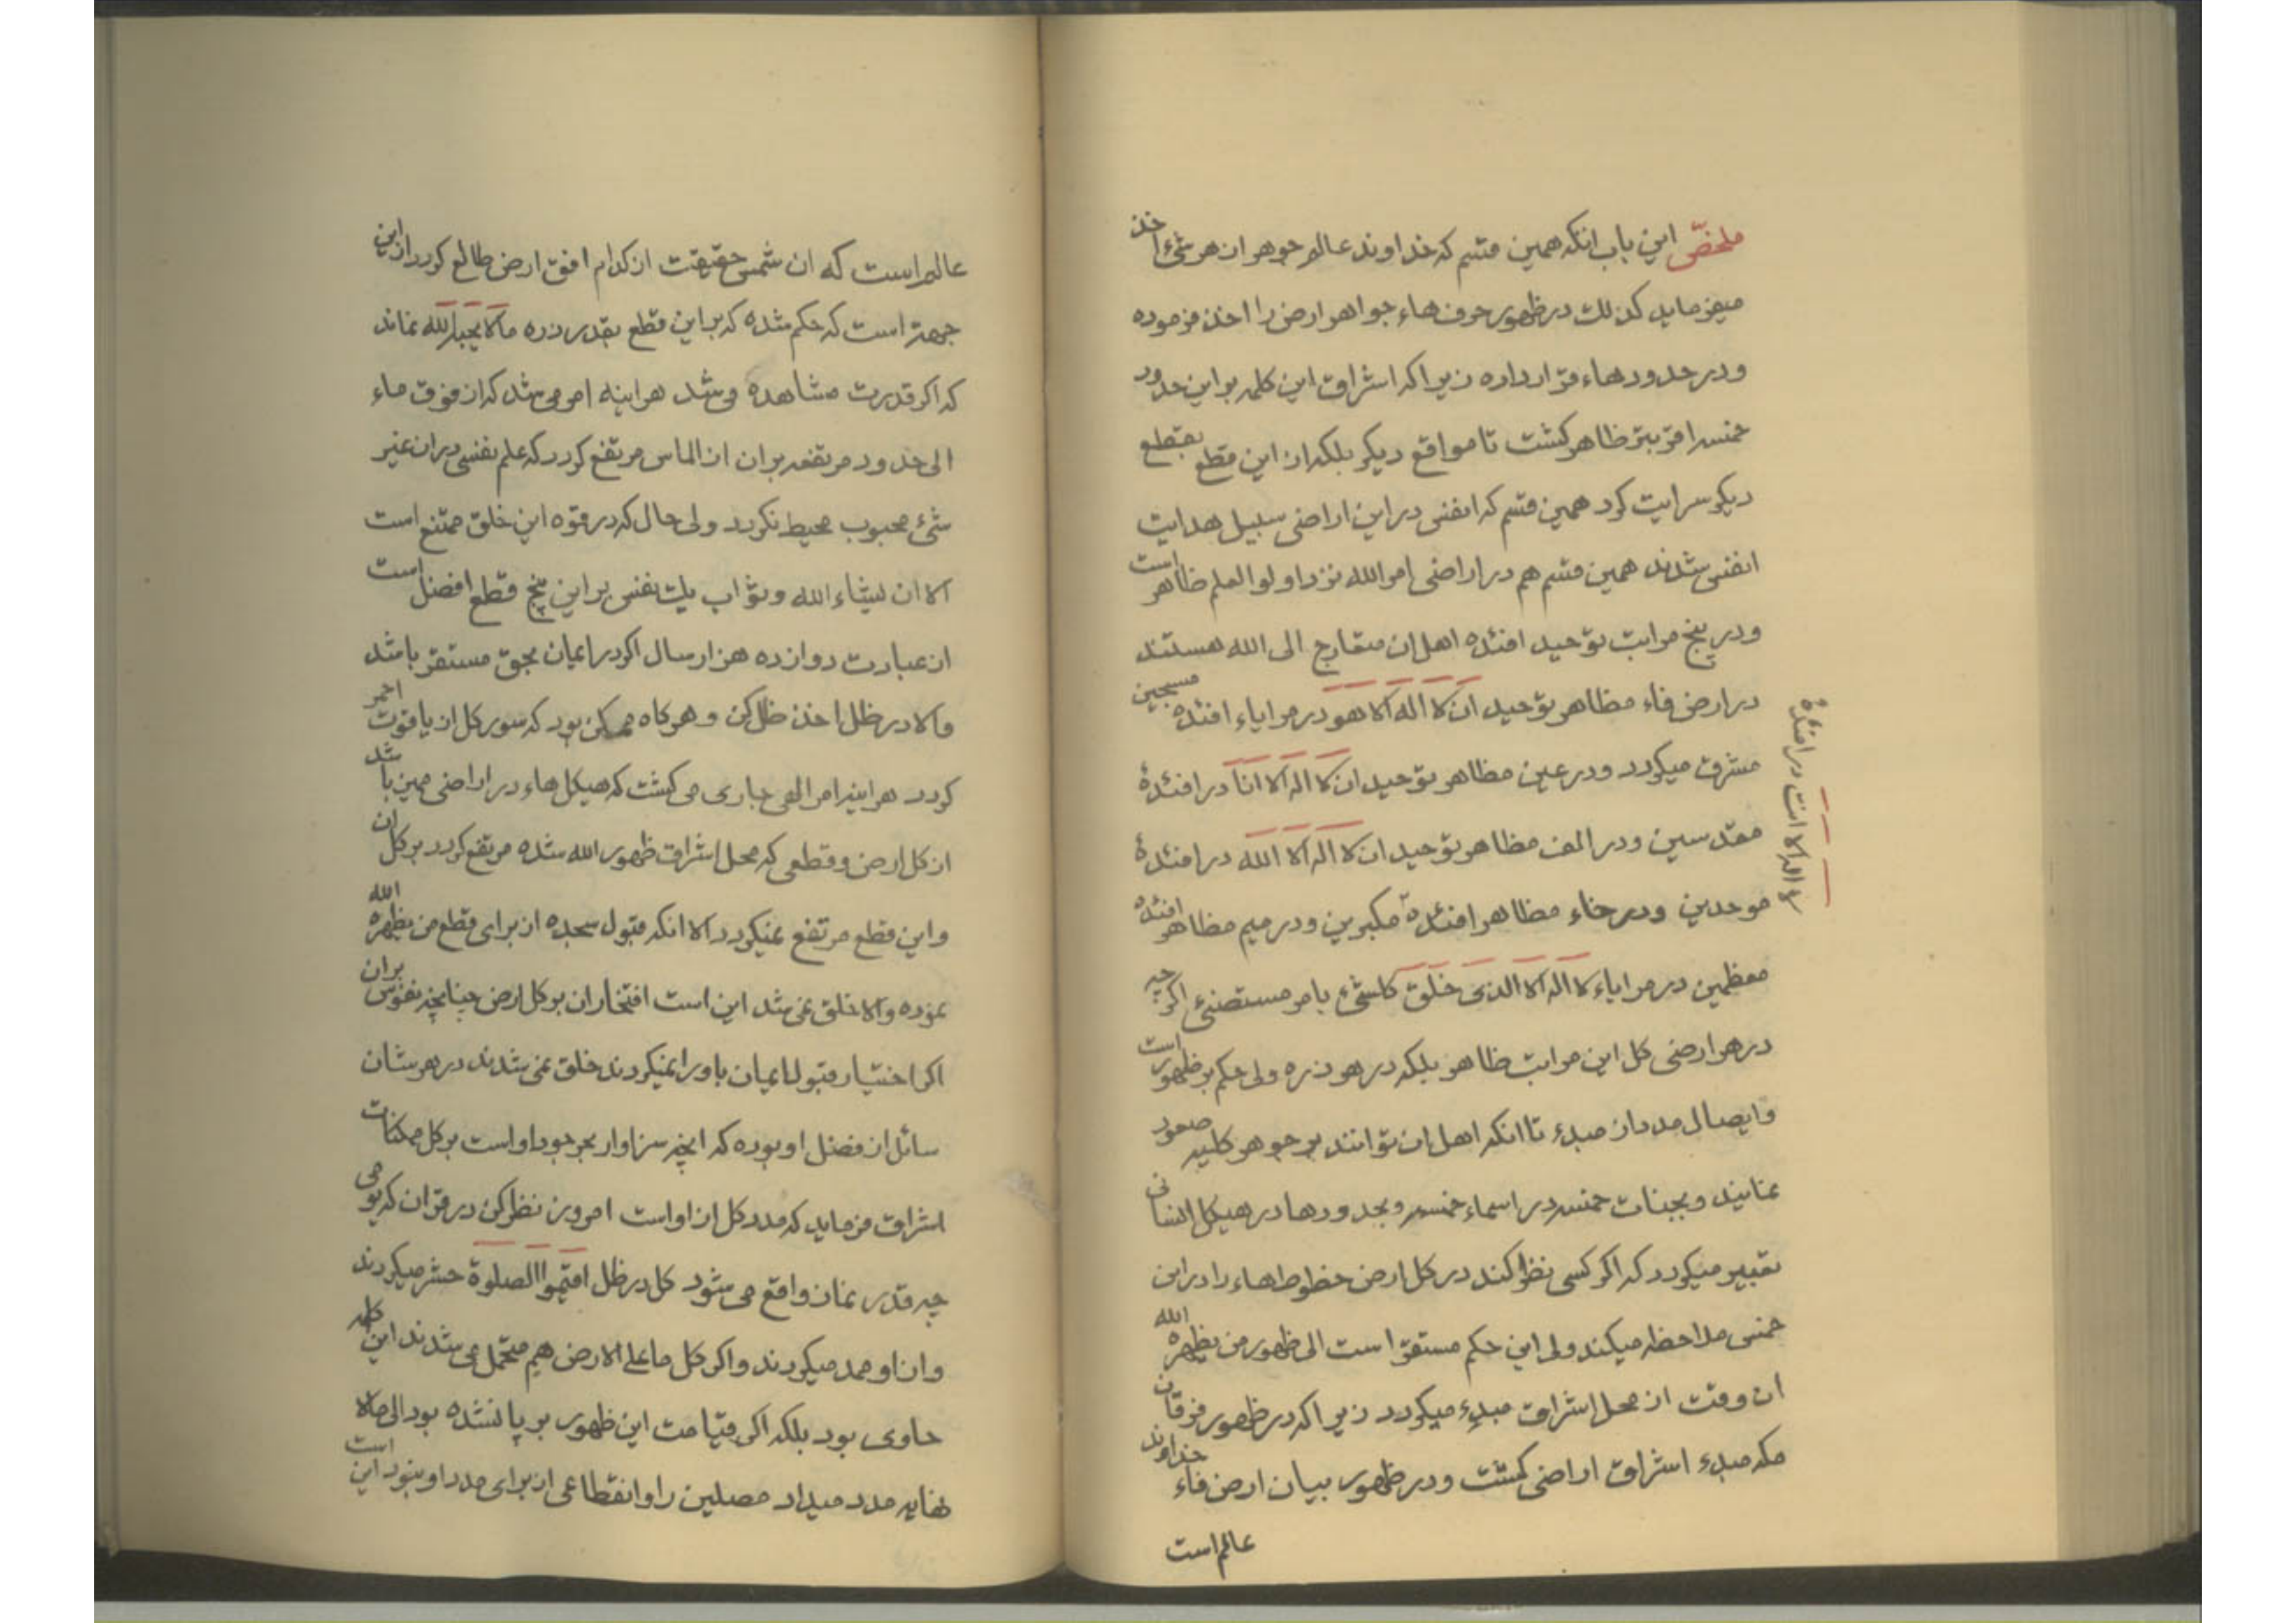 ملخص این باب انکه همین قسم که خداوند عالم جوهر از هر شیء اخذ
میفرماید کذلک در ظهور حرف هاء جواهر ارض را اخذ فرموده
و در حدود هاء قرار داده زیرا که اشراق این کلمه بر این حدود
خمسه اقرب تر ظاهر کشت تا مواقع دیکر بلکه از این قطع بقطع
دیکر سرایت کرد همین قسم که انفسی در این اراضی سبیل هدایت
انفس شدند همین قسم هم در اراضی امر الله نزد اولوا العلم ظاهر است
و در پنج مراتب توحید افئده اهل ان متعارج الی الله هستند
در ارض فاء مظاهر توحید ان لا اله الا هو در مرایاء افئده مسبحین
مشرق میکردد و در عین مظاهر توحید ان لا اله الا انا در افئدهٔ
مقدسین و در الف مظاهر توحید ان لا اله الا الله در افئدهٔ
موحدین و در خاء مظاهر افئدهٔ مکبرین و در میم مظاهر افئده
معظمین در مرایاء لا اله الا الذی خلق کلشیء بامر مستضیء اکر چه
در هر ارضی کل این مراتب ظاهر بلکه در هر ذره ولی حکم بر ظهور است
و ایصال مدد از مبدء تا انکه اهل ان توانند بر جوهر کلیه صعود
نمایند و بجنات خمسه در اسماء خمسه و بحدود ها در هیکل انسانی
تعبیر میکردد که اکر کسی نظر کند در کل ارض خطوط هاء را در این
خمس ملاحظه میکند ولی این حکم مستقر است الی ظهور من یظهره الله
ان وقت از محل اشراق مبدء میکردد زیرا که در ظهور فرقان
مکه مبدء اشراق اراضی کشت و در ظهور بیان ارض فاء خداوند
عالم است
لا اله الا انت در افئدهٔ
عالم است که ان شمس حقیقت از کدام افق ارض طالع کردد از این
جهة است که حکم شده که بر این قطع بقدر ذره ما لا یحبه الله نماند
که اکر قدرت مشاهده می شد هراینه امر می شد که از فوق ماء
الی حدود مرتفعه بران از الماس مرتفع کردد که علم نفسی در ان غیر
شیء محبوب محیط نکردد ولی حال که در قوه این خلق ممتنع است
الا ان یشاء الله و ثواب یک نفس بر این پنج قطع افضل است
از عبادت دوازده هزار سال اکر در ایمان بحق مستقر باشد
والا در ظل اخذ ظل کن و هر کاه ممکن بود که سور کل از یاقوت احمر
کردد هراینه امر الهی جاری می کشت که هیکل هاء در اراضی ممین باشد
از کل ارض و قطعی که محل اشراق ظهور الله شده مرتفع کردد بر کل ان
و این قطع مرتفع نمیکردد الا انکه قبول سجده از برای قطع من یظهره الله
نموده والا خلق نمی شد این است افتخار ان بر کل ارض چنانچه نفوس بران
اکر اختیار قبول ایمان باو را نمیکردند خلق نمی شدند در هر شان
سائل از فضل او بوده که انچه سزاوار بحر جود او است بر کل ممکنات
اشراق فرماید که مدد کل از او است امروز نظر کن در قران که یومی
چه قدر نماز واقع می شود کل در ظل اقیموا الصلوة حشر میکردند
و از او ممد میکردند و اکر کل ما علی الارض هم متحمل می شدند این کلمه
حاوی بود بلکه اکر قیامت این ظهور بر پا نشده بود الی ما لا
نهایه مدد میداد مصلین را و انقطاعی از برای مدد او نبود این است